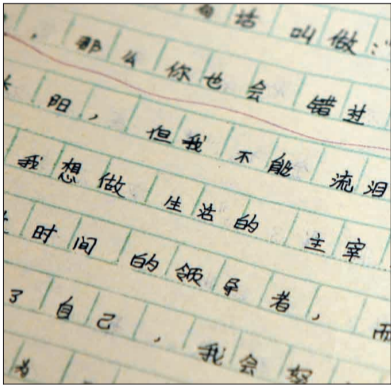 句话叫做:
,那么你也会错过
阳,但我不能流泪
我想做生活的主宰
时间的领导者,而
了自己,我会努
为